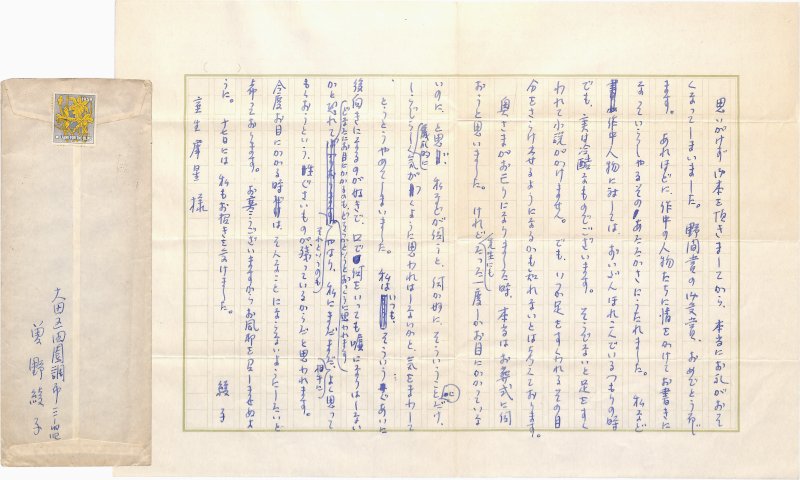 思いがけず御本を頂きましてから、本当にお礼がおそ
くなってしまいました。野間賞の御受賞、おめでとうぞんじ
ます。あれほどに、作中の人物たちに情をかけてお書きに
なっていらっしゃるそのあたたかさにうたれました。私など
作中人物に対しては、ずいぶんほれこんでいるつもりの時
でも、実は冷酷なものでございます。そうでないと足をすく
われて小説がかけません。でも、いつか足をすくわれるその自
分をさらけ出せるようになるかも知れないとは思っております。
奥さまがお亡くなりになりました時、本当はお葬式に伺
おうと思いました。けれど先生にもたった一度しかお目にかかっていな
いのに、と思い、私などが伺うと、何か妙に、そういうことだけ、
儀礼的に
気がつくように思われはしないかと、気をまわして
とうとうやめてしまいました。私はいつも、そういうであいに
後向きになるのが好きで、口で何をいっても嘘になりはしない
かと恐れて
じまたにお目にかかるのも
やはり、私にまだよく思って
それというのも
相手に
もらおうという、ものが残っているからだと思われます。
今度お目にかかる時は、そんなことにならないようにしたいと
希っております。お寒うございますからお風邪を召しませぬよ
うに。十七日には私もお招きを受けました。
綾子
室生犀星様
大田区田園調布三ノ
曽野綾子